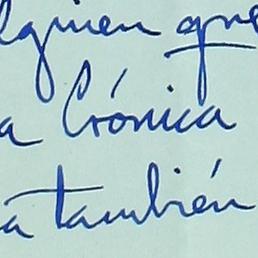 alguien que
a Crónica
a también